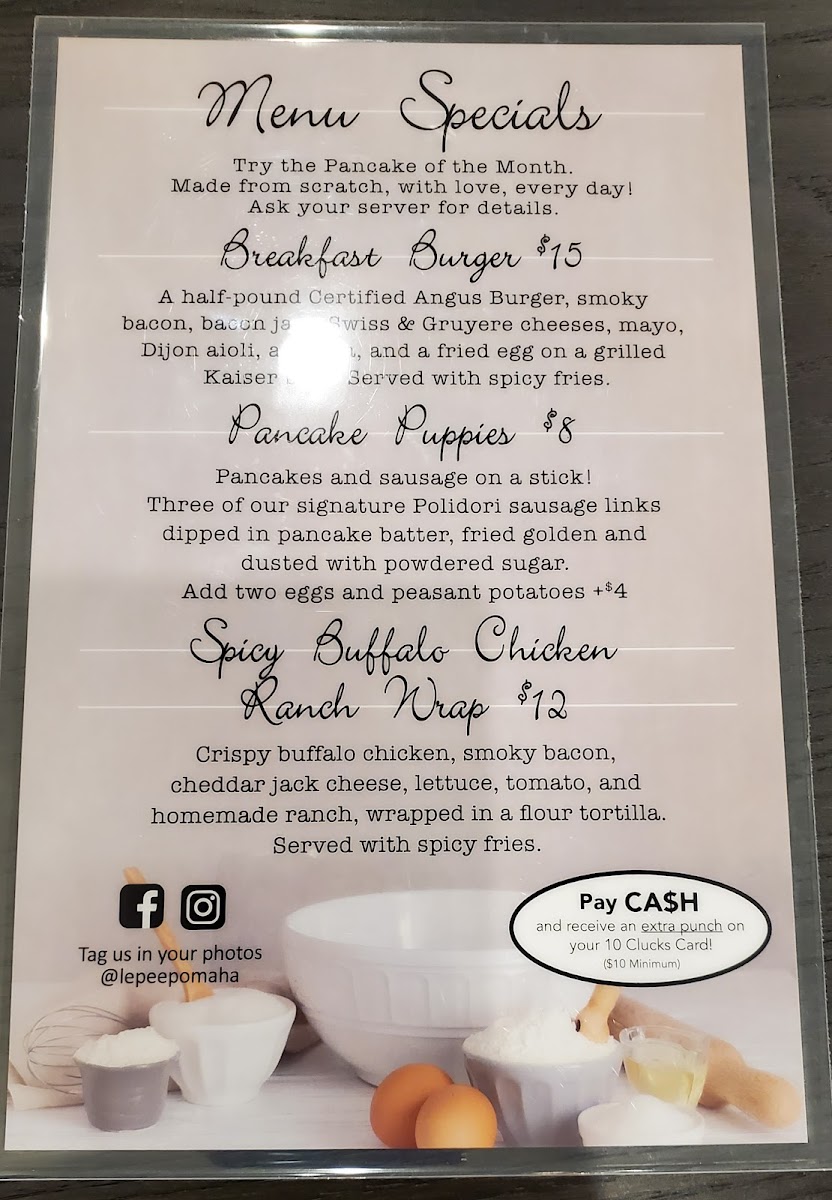 Menu Specials
Try the Pancake of the Month.
Made from scratch, with love, every day!
Ask your server for details.
Breakfast Burger $15
A half-pound Certified Angus Burger, smoky
bacon, bacon Swiss & Gruyere cheeses, mayo,
Dijon aioli, and a fried egg on a grilled
Kaiser Served with spicy fries.
Pancake Puppies $8
Pancakes and sausage on a stick!
Three of our signature Polidori sausage links
dipped in pancake batter, fried golden and
dusted with powdered sugar.
Add two eggs and peasant potatoes +$4
Spicy Buffalo Chicken
Ranch Wrap $12
Crispy buffalo chicken, smoky bacon,
cheddar jack cheese, lettuce, tomato, and
homemade ranch, wrapped in a flour tortilla.
Served with spicy fries.
Tag us in your photos
@lepeepomaha
Pay CA$H
and receive an extra punch on
your 10 Clucks Card!
($10 Minimum)